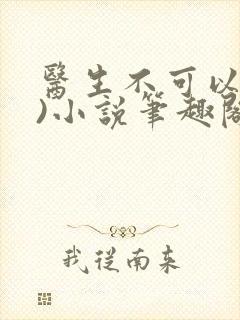 醫生不可以
)小說筆趣閣
我從南來